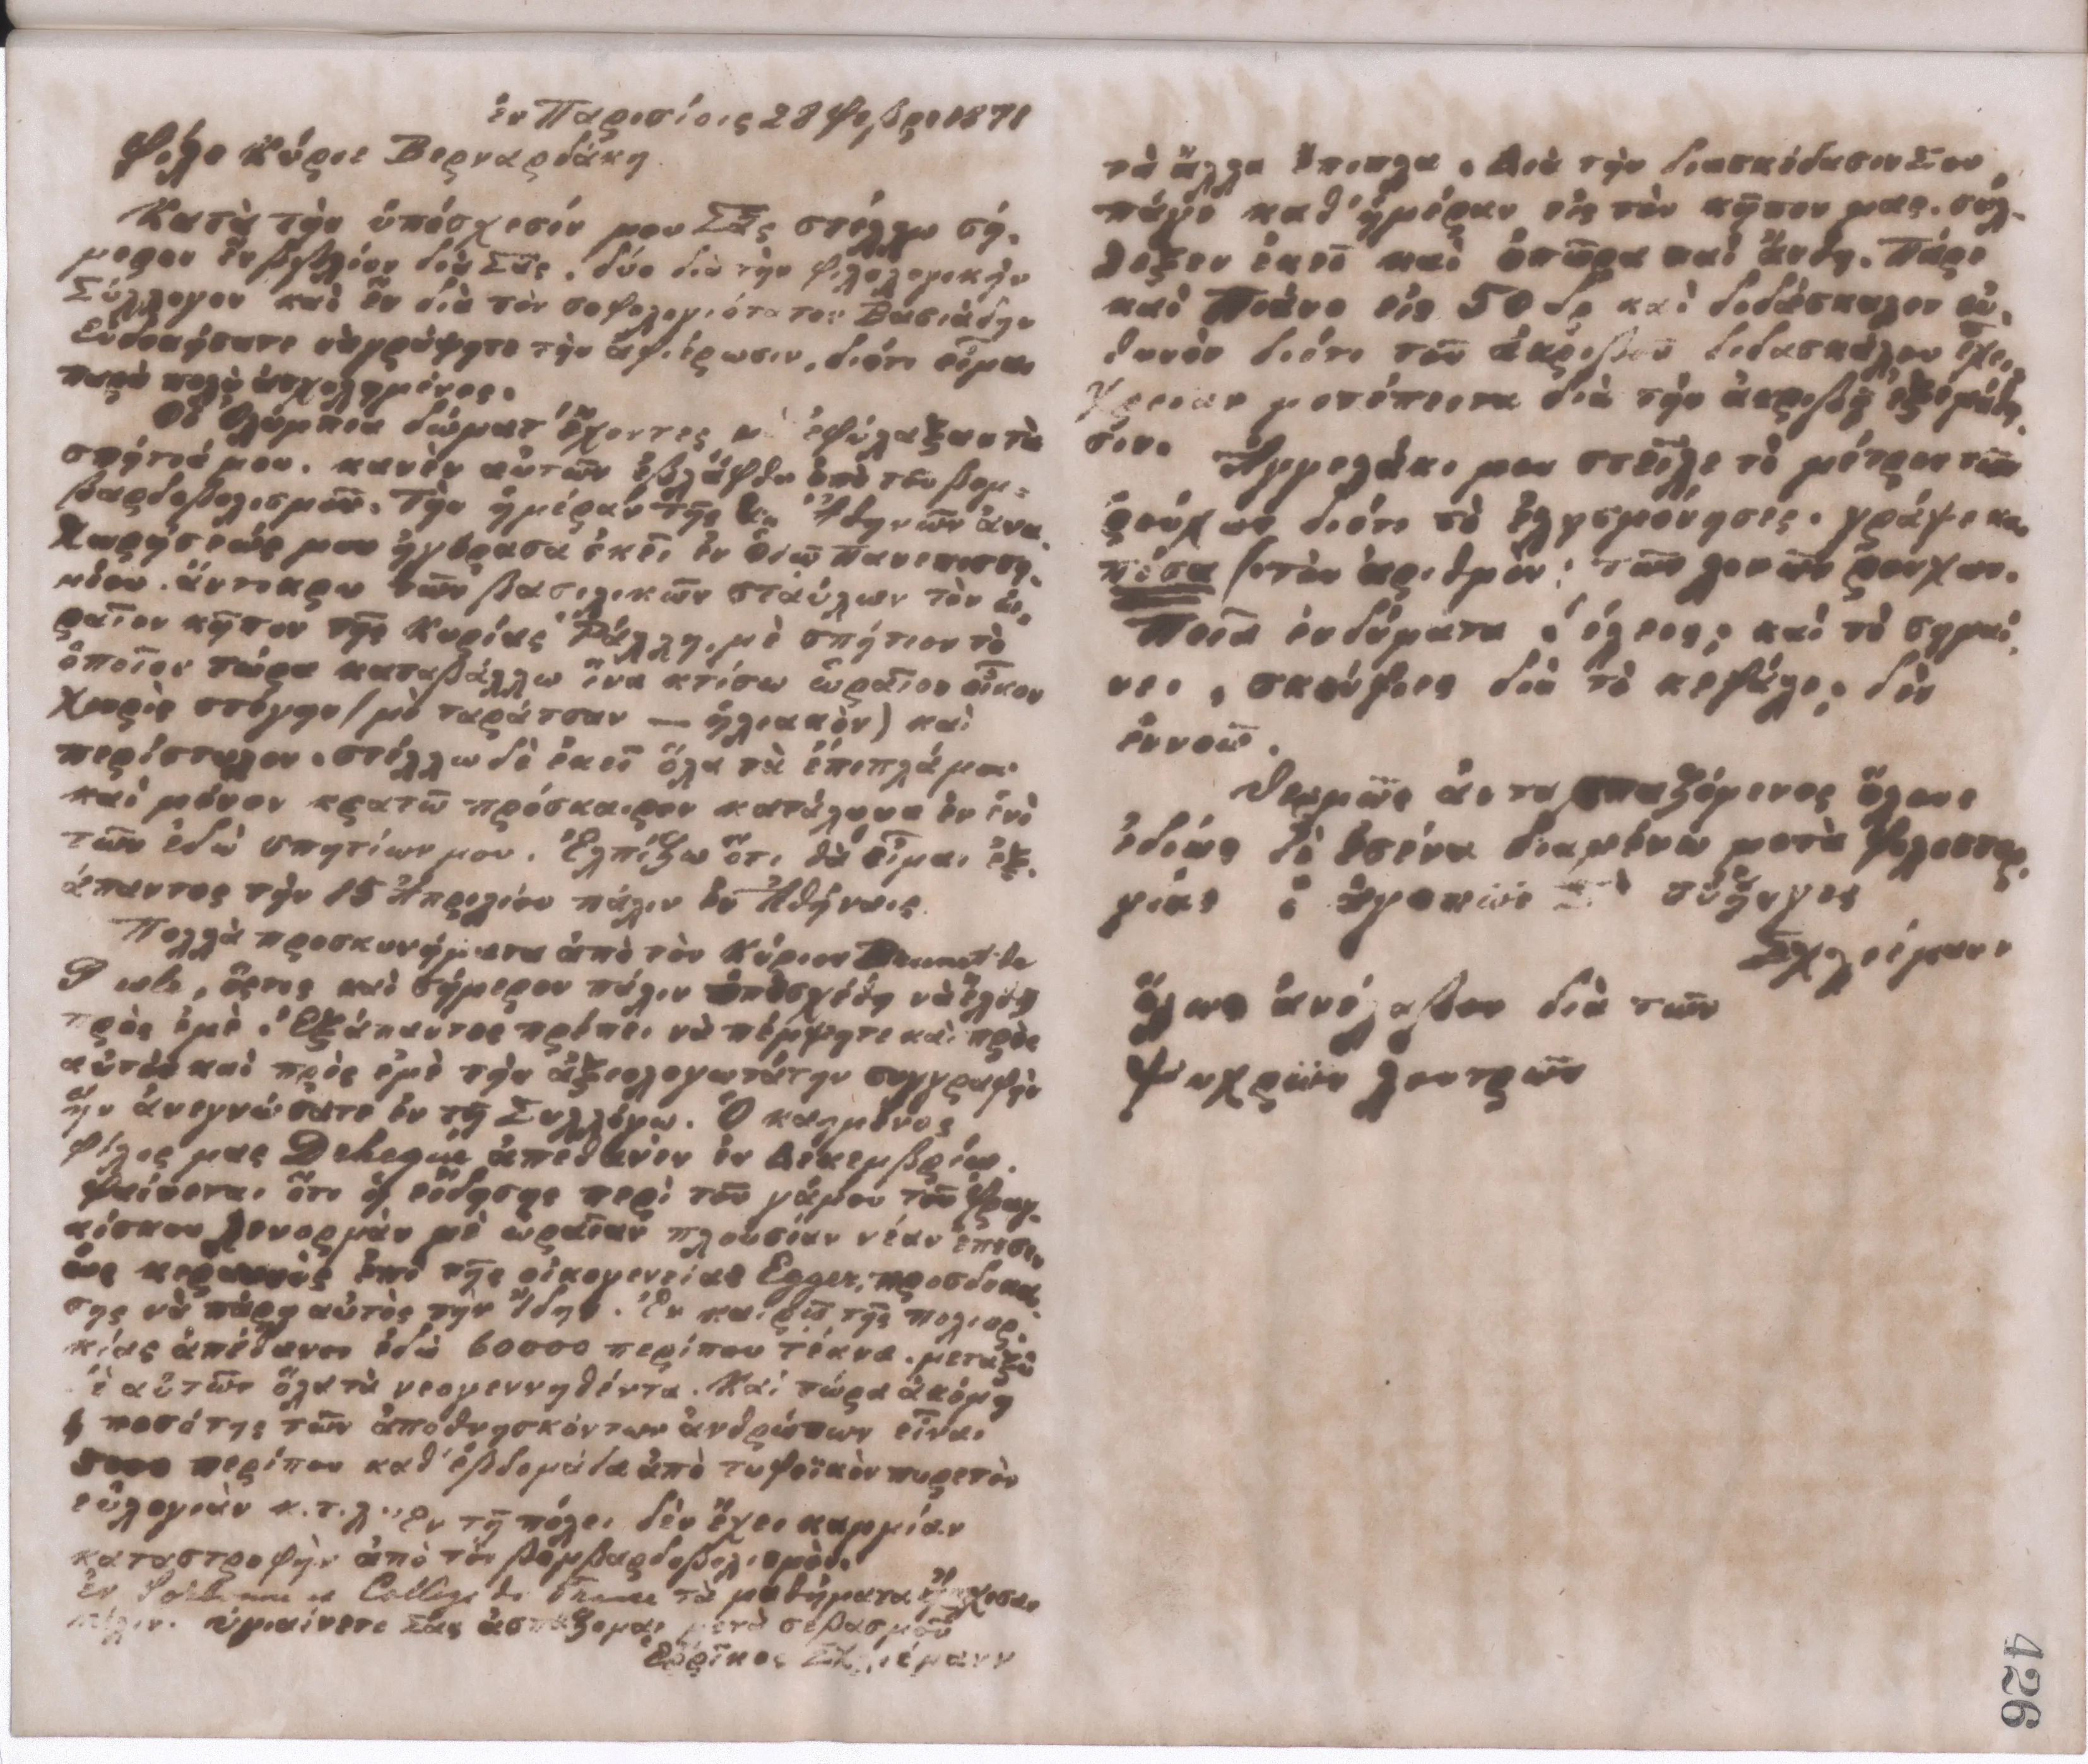 ἐν Παρισίοις 28 Φεβρ 1871
Φίλε Κύριε Βερναρδάκη
Κατὰ τὴν ὑπόσχεσίν μου Σᾶς στέλλω σή-
μερον ἓν βιβλίον διὰ Σᾶς, δύο διὰ τὴν φιλολογικὸν
Σύλλογον καὶ ἓν διὰ τὸν σοφολογιότατον Βασιάδην
Εὐδοκήσατε νὰ γράψητε τὴν ἀφιέρωσιν, διότι εἶμαι
παρὰ πολὺ ἀσχολημένος.
Οἱ Ὀλύμπια δώματ' ἔχοντες μὲ ἐφύλαξαν τὰ
σπήτιά μου. κανὲν αὐτῶν ἐβλάφθη ὑπὸ τοῦ βομ-
βαρδοβολισμοῦ. Τὴν ἡμέραν τῆς ἐξ Ἀθηνῶν ἀνα-
χωρήσεώς μου ἠγόρασα ἐκεῖ ἐν ὁδῷ πανεπιστη-
μίου ἄντικρυ τῶν βασιλικῶν σταύλων τὸν ὡ-
ραῖον κῆπον τῆς Κυρίας Ῥάλλη, μὲ σπήτιον τὸ
ὁποῖον τώρα καταβάλλω ἵνα κτίσω ὡραῖον οἶκον
χωρὶς στέγην (μὲ ταράτσαν — ἡλιακὸν) καὶ
περίστυλον. στέλλω δὲ ἐκεῖ ὅλα τὰ ἔπιπλά μου
καὶ μόνον κρατῶ πρόσκαιρον κατάλυμα ἐν ἑνὶ
τῶν ἐδῶ σπητίων μου. Ἐλπίζω ὅτι θὰ εἶμαι ἐξ-
άπαντος τὴν 15 Ἀπριλίου πάλιν ἐν Ἀθήναις.
Πολλὰ προσκυνήματα ἀπὸ τὸν Κύριον Brunet de
Presle, ὅστις καὶ σήμερον πάλιν ὑπεσχέθη νὰ ἔλθῃ
πρὸς ἐμέ. Ἐξάπαντος πρέπει νὰ πέμψητε καὶ πρὸς
αὐτὸν καὶ πρὸς ἐμὲ τὴν ἀξιολογωτάτην συγγραφὴν
ἣν ἀνεγνώσατε ἐν τῷ Συλλόγῳ. Ὁ καημένος
φίλος μας Dehèque ἀπέθανεν ἐν Δεκεμβρίῳ.
Φαίνεται ὅτι ἡ εἴδησις περὶ τοῦ γάμου τοῦ Φραγ-
κίσκου Λενορμὰν μὲ ὡραῖαν πλουσίαν νέαν ἔπεσε
ὡς κεραυνὸς ἐπὶ τῆς οἰκογενείας Egger, προσδοκα-
σης νὰ πάρῃ αὐτὸς τὴν ἰδίην. Ἐν καιρῷ τῆς πολιορ-
κίας ἀπέθανον ἐδῶ 60000 περίπου τέκνα. μεταξὺ
δὲ αὐτῶν ὅλα τὰ νεογεννηθέντα. Καὶ τώρα ἀκόμη
ἡ ποσότης τῶν ἀποθνησκόντων ἀνθρώπων εἶναι
περίπου καθ' ἑβδομάδα ἀπὸ τυφοϊκὸν πυρετὸν
εὐλογιὰν κ.τ.λ. Ἐν τῇ πόλει δὲν ἔχει καμμίαν
καταστροφὴν ἀπὸ τὸν βομβαρδοβολισμόν.
Ἐν Sorbonne et Collège de France τὰ μαθήματα ἤρχισαν
πάλιν. ὑγιαίνετε Σᾶς ἀσπάζομαι μετὰ σεβασμοῦ
Ἑρρῖκος Σχλιέμανν
τὰ ἄλλα ἔπιπλα. Διὰ τὴν διασκέδασιν Σου
πάγε καθ' ἡμέραν εἰς τὸν κῆπον μας. σύλ-
λεξεν ἐκεῖ καὶ ὀπῶρα καὶ ἄνθη. Πάρε
καὶ Πιάνο εἰς 50 δρ καὶ διδάσκαλον εὐ-
θυνὸν διότι τοῦ ἀκριβοῦ διδασκάλου ἔχεις
χρείαν μετέπειτα διὰ τὴν ἀκριβῆ ἐξέμάθη-
σιν. Ἀγγελάκι μου στεῖλε τὸ μέτρον τῶν
ῥούχων διότι τὸ ἐλησμόνησες. γράψε και
πόσα (τὸν ἀριθμόν) τῶν λοιπῶν ῥούχων.
Ποῖα ἐνδύματα θέλεις; καὶ τὸ σημαί-
νει, σκούφιες διὰ τὸ κεφάλι; δὲν
ἐννοῶ.
Θερμῶς ἀνταπασπαζόμενος ὅλους
ἰδίως δὲ ἐσένα διαμένω μετὰ φιλοστορ-
γίας ὁ ἀγαπῶν Σε σύζυγος
Σχλιέμανν
ὅλως ἀνέλαβον διὰ τῶν
ψυχρῶν λουτρῶν
426